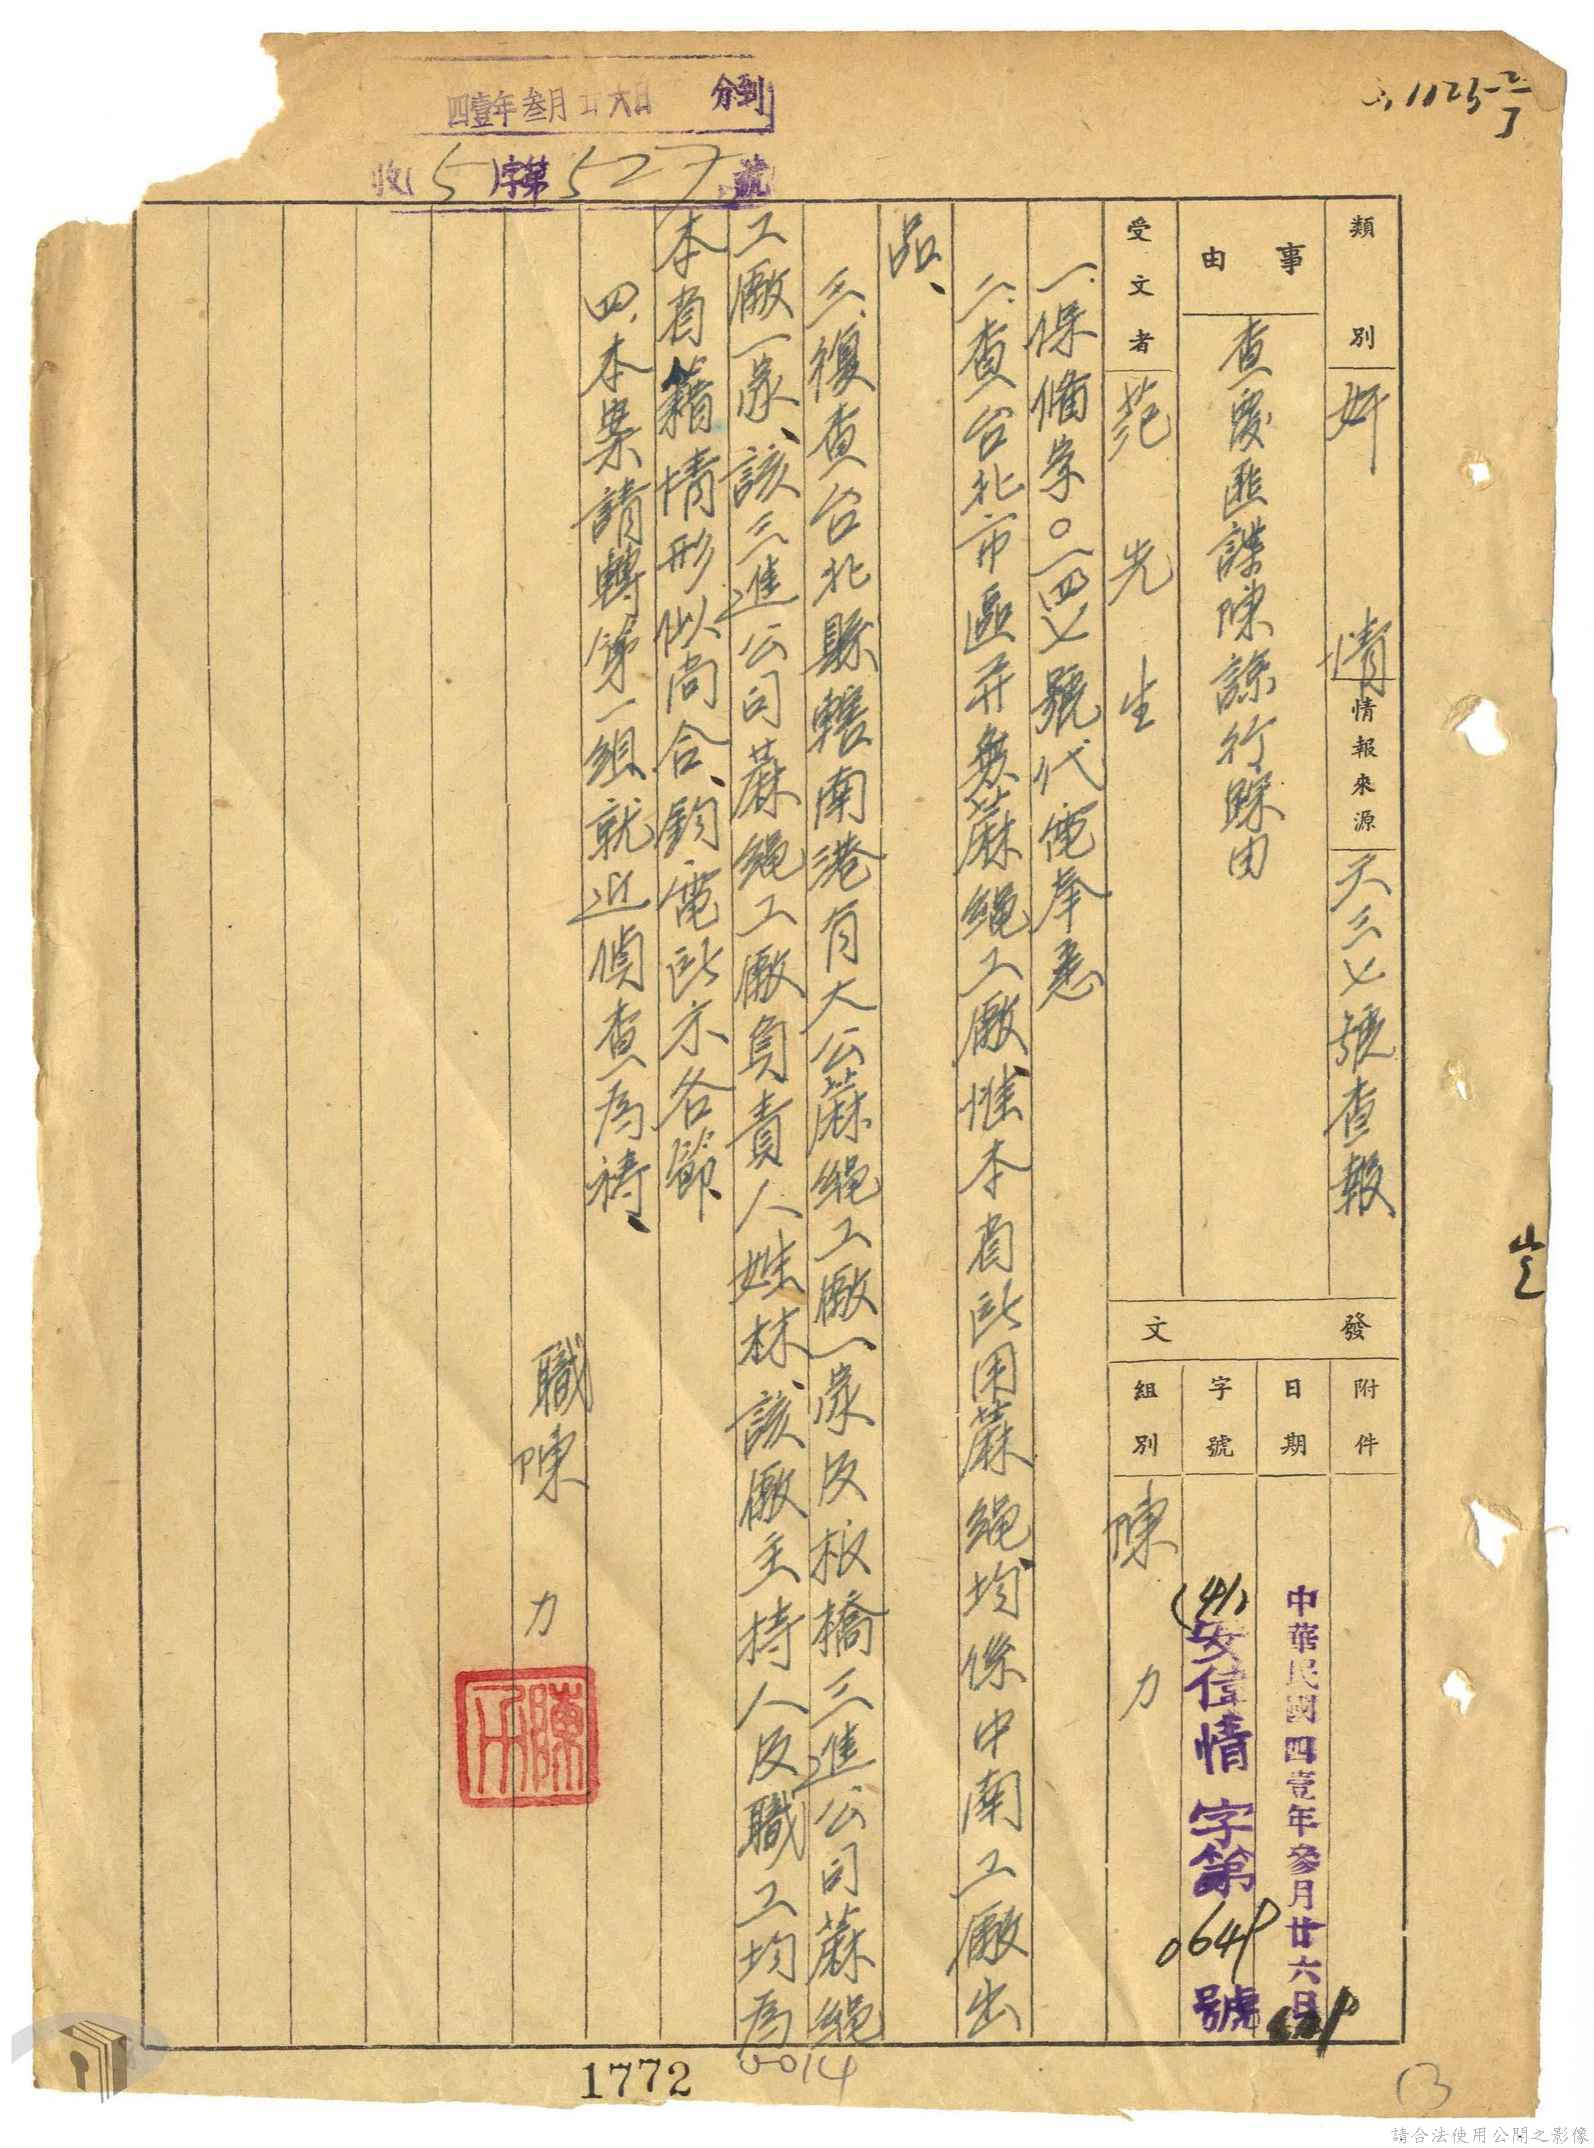 四壹年叁月廿六日 分到
收(5)字第527號
類別 奸情
情報來源 天三七號查報
事由 查覆匪諜陳諒行蹤由
受文者 范先生
發文
附件
日期 中華民國四壹年參月廿六日
字號 (41)安信情字第0649號
組別 陳力
一、保脩字0一四七號代電奉悉
二、查台北市區并無蔴繩工廠、惟本省所用蔴繩均係中南工廠出
品、
三、複查台北縣轄南港有大公蔴繩工廠一家及板橋三進公司蔴繩
工廠一家、該三進公司蔴繩工廠負責人姓林、該廠主持人及職工均為
本省籍情形似尚合、鈞電所示各節、
四、本案請轉第一組就近偵查為禱、
職陳力
1772
0014
13
請合法使用公開之影像